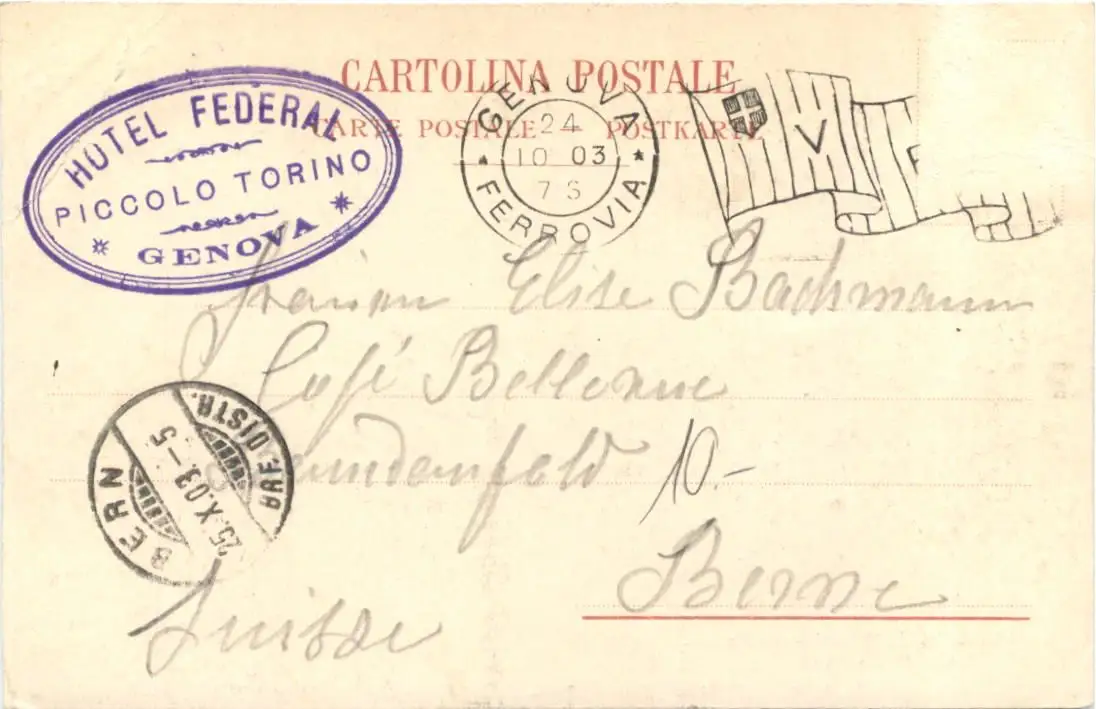 CARTOLINA POSTALE
CARTE POSTALE — POSTKARTE
HOTEL FEDERAL
PICCOLO TORINO
GENOVA
GENOVA
24
10 03
7 S
FERROVIA
V
Elise Bachmann
Café Bellevue
10.-
Berne
Suisse
BERN
25.X.03.-5